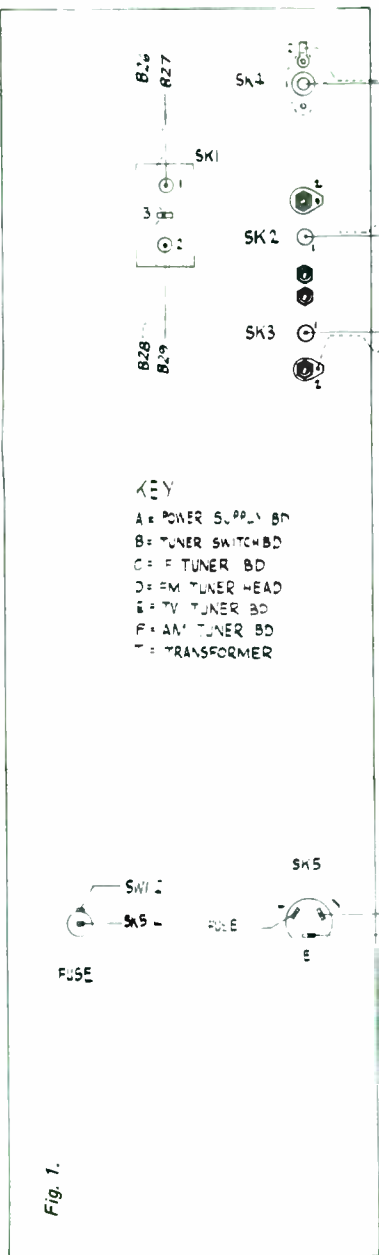 B26
B27
SK4
2
SK1
1
3
2
2
SK2
1
SK3
1
2
B28
B29
KEY
A = POWER SUPPLY BD
B = TUNER SWITCH BD
C = IF TUNER BD
D = FM TUNER HEAD
E = TV TUNER BD
F = AM TUNER BD
T = TRANSFORMER
SK5
SK5
FUSE
E
FUSE
Fig. 1.